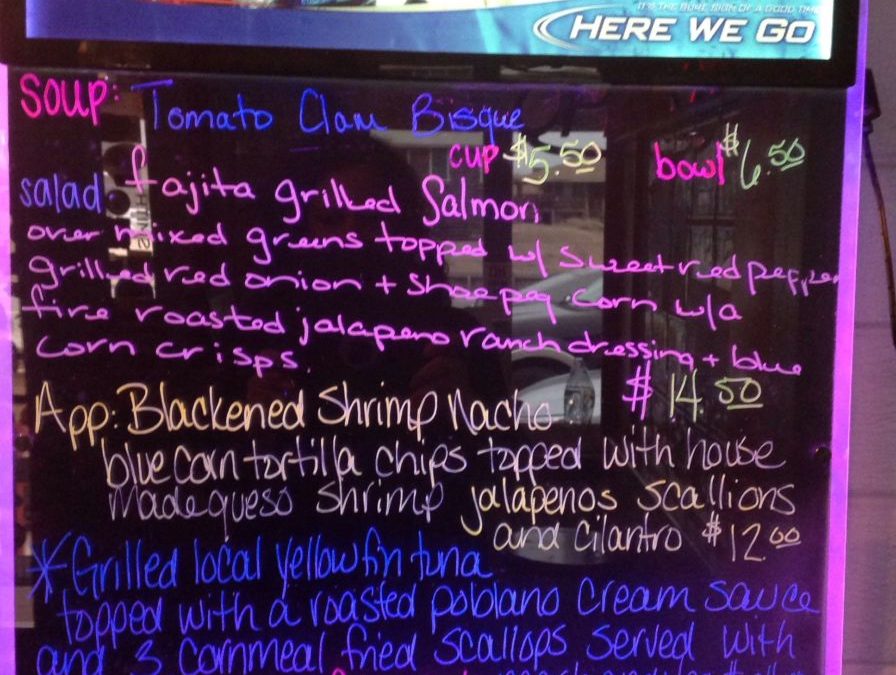 IT'S THE SURE SIGN OF A GOOD TIME
HERE WE GO
Soup: Tomato Clam Bisque
cup $5.50 bowl $6.50
salad: fajita grilled Salmon
over mixed greens topped w/ sweet red pepper
grilled red onion + shoepeg corn w/a
fire roasted jalapeno ranch dressing + blue
corn crisps. $14.50
App: Blackened Shrimp Nacho
blue corn tortilla chips topped with house
made queso shrimp jalapenos scallions
and cilantro $12.00
*Grilled local yellowfin tuna
topped with a roasted poblano cream sauce
and 3 cornmeal fried scallops served with